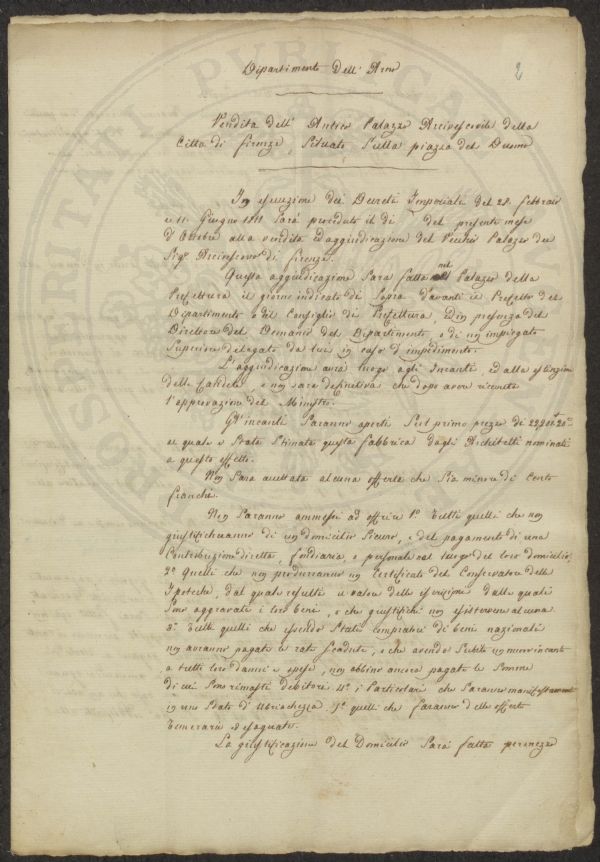 2
Dipartimento Dell' Arno
Vendita dell' Antico Palazzo Arcivescovile della
Città di firenze, Situato Sulla piazza del Duomo
In esecuzione dei Decreti Imperiali del 28. febbraio
e 11. Giugno 1811 Sarà proceduto il dì del presente mese
d'Ottobre alla vendita ed aggiudicazione del Vecchio Palazzo dei
Arcivescovi di firenze.
Questa aggiudicazione Sarà fatta nel Palazzo della
Prefettura il giorno indicato di Sopra davanti il Prefetto del
Dipartimento del Consiglio di Prefettura ed in presenza del
Direttore del Demanio del Dipartimento, o di un impiegato
Superiore delegato da lui in caso d'impedimento.
L'aggiudicazione avrà luogo agli Incanti, ed alla estinzione
delle Candele, e non sarà definitiva che dopo avere ricevuta
l'approvazione del Ministro.
Gl' incanti Saranno aperti Sul primo prezzo di
al quale è Stata Stimata questa fabbrica dagli Architetti nominati
a questo effetto.
Non Sarà accettata alcuna offerta che Sia minore di Cento
franchi.
Non Saranno ammessi ad offrire 1.° Tutti quelli che non
giustificheranno di un domicilio Sicuro, e del pagamento di una
Contribuzione diretta, fondiaria, o personale nel luogo del loro domicilio;
2.° Quelli che non produrranno un Certificato del Conservatore delle
Ipoteche, dal quale resulti il valore delle iscrizioni dalle quali
Sono aggravati i loro beni, o che giustifichi non esistervene alcuna
3.° Tutti quelli che essendo Stati Compratori di beni nazionali
non avranno pagato le rate Scadute, o che avendo Subito un nuovo incanto
a tutti loro danni e spese, non abbino ancora pagato le Somme
di cui Sono rimasti debitori 4.° i Particolari che Saranno manifestamente
in uno Stato d'Ubriachezza. 5.° quelli che faranno delle offerte
temerarie
La giustificazione del Domicilio Sarà fatta per mezzo